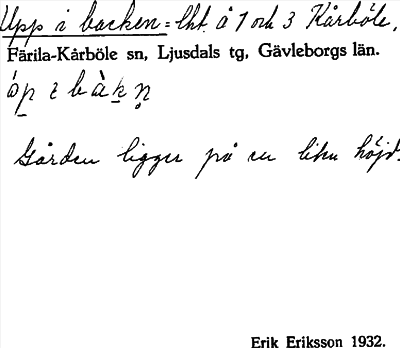 Upp i backen = lht å 1 och 3 Kårböle.
Färila-Kårböle sn, Ljusdals tg, Gävleborgs län.
óp i bàkn̥
Gården ligger på en liten höjd.
Erik Eriksson 1932.